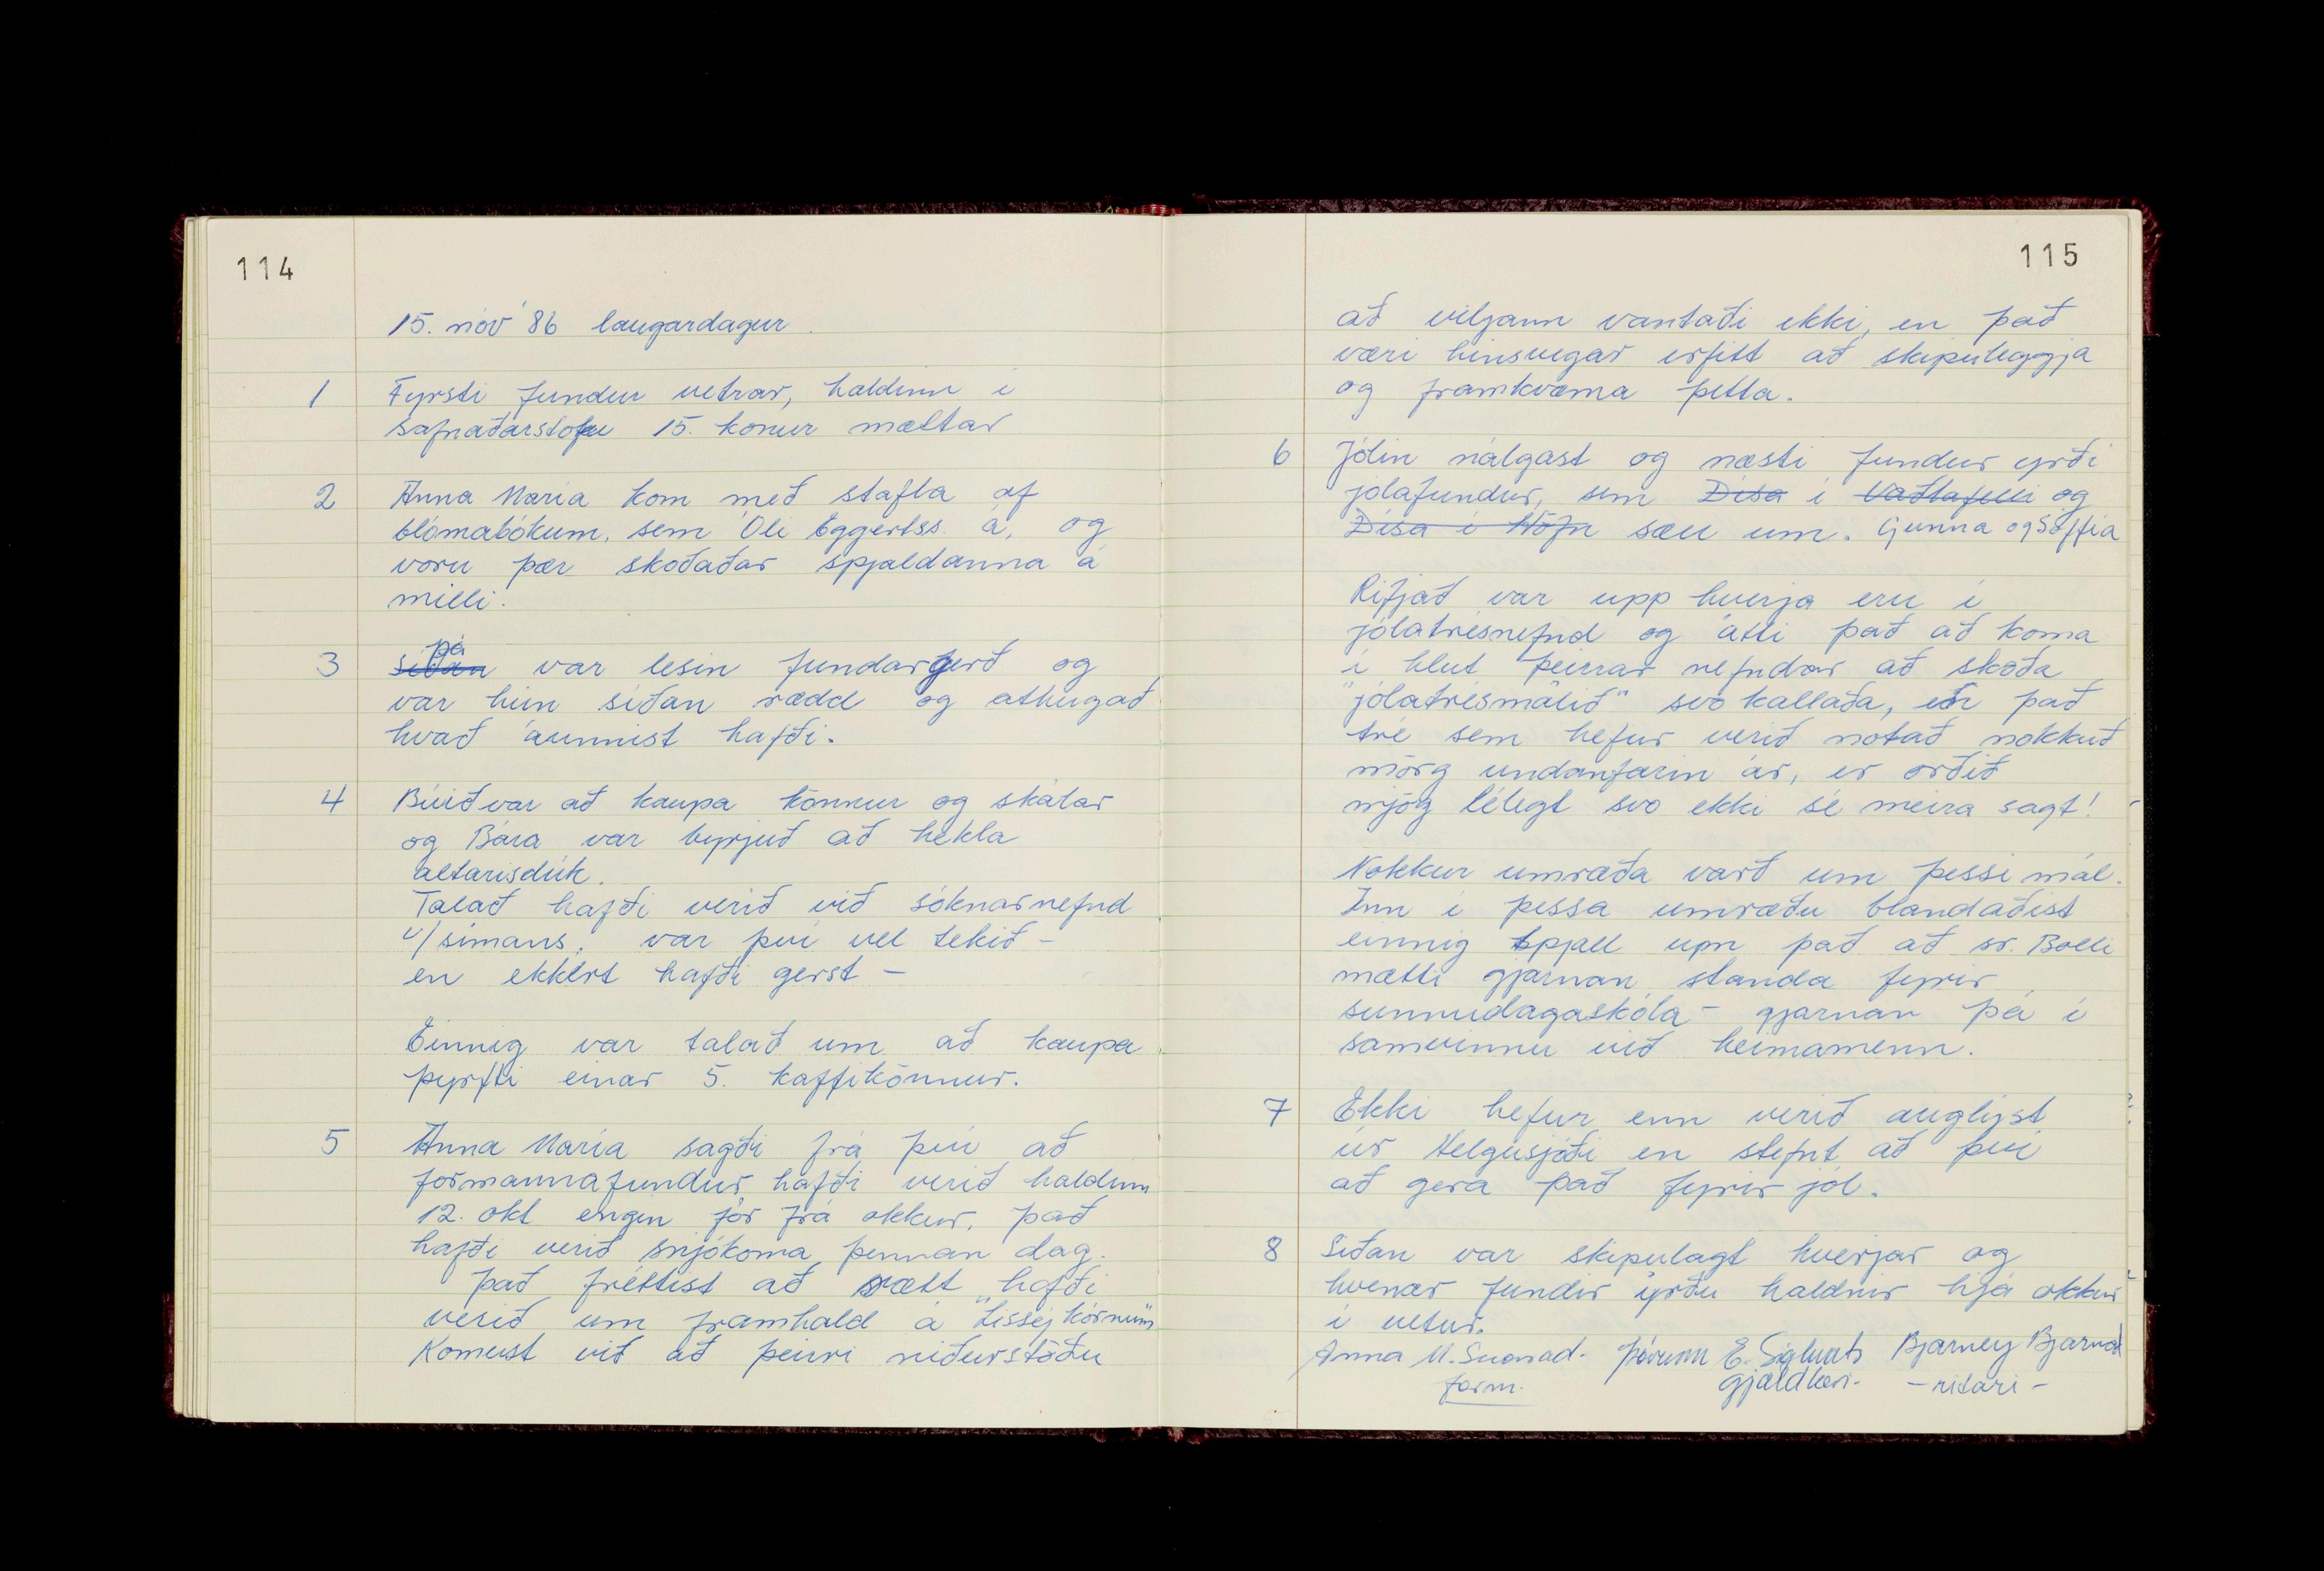 114
15. nóv '86 laugardagur.
1 Fyrsti fundur vetrar, haldinn í
safnaðarstofu 15. konur mættar
2 Anna María kom með stafla af
blómabókum, sem Óli Eggertss. á, og
voru þær skoðaðar spjaldanna á
milli.
þá
3 síðan var lesin fundargerð og
var hún síðan rædd og athugað
hvað áunnist hafði.
4 Búið var að kaupa könnur og skálar
og Bára var byrjuð að hekla
altarisdúk.
Talað hafði verið við sóknarnefnd
v/símans, var því vel tekið -
en ekkert hafði gerst -
Einnig var talað um að kaupa
þyrfti einar 5. kaffikönnur.
5 Anna María sagði frá því að
formannafundur hafði verið haldinn
12. okt engin fór frá okkur, það
hafði verið snjókoma þennan dag.
Það fréttist að rætt hafði
verið um framhald á "Lissýkórnum"
Komust við að þeirri niðurstöðu
115
að viljann vantaði ekki, en það
væri hinsvegar erfitt að skipuleggja
og framkvæma þetta.
6 Jólin nálgast og næsti fundur yrði
jólafundur, sem Dísa í Vaðlafelli og
Dísa í Höfn sæu um. Gunna og Soffía
Rifjað var upp hverja eru í
jólatrésnefnd og átti það að koma
í hlut þeirrar nefndar að skoða
"jólatrésmálið" svo kallaða, en það
tré sem hefur verið notað nokkuð
mörg undanfarin ár, er orðið
mjög lélegt svo ekki sé meira sagt!
Nokkur umræða varð um þessi mál.
Inn í þessa umræðu blandaðist
einnig spjall um það að sr. Bolli
mætti gjarnan standa fyrir
sunnudagaskóla - gjarnan þá í
samvinnu við heimamenn.
7 Ekki hefur enn verið auglýst
úr Helgusjóði en stefnt að því
að gera það fyrir jól.
8 Síðan var skipulagt hverjar og
hvenær fundir yrðu haldnir hjá okkur
í vetur.
Anna M. Þórunn E. Bjarney Bjarnad
form. gjaldkeri - -ritari-